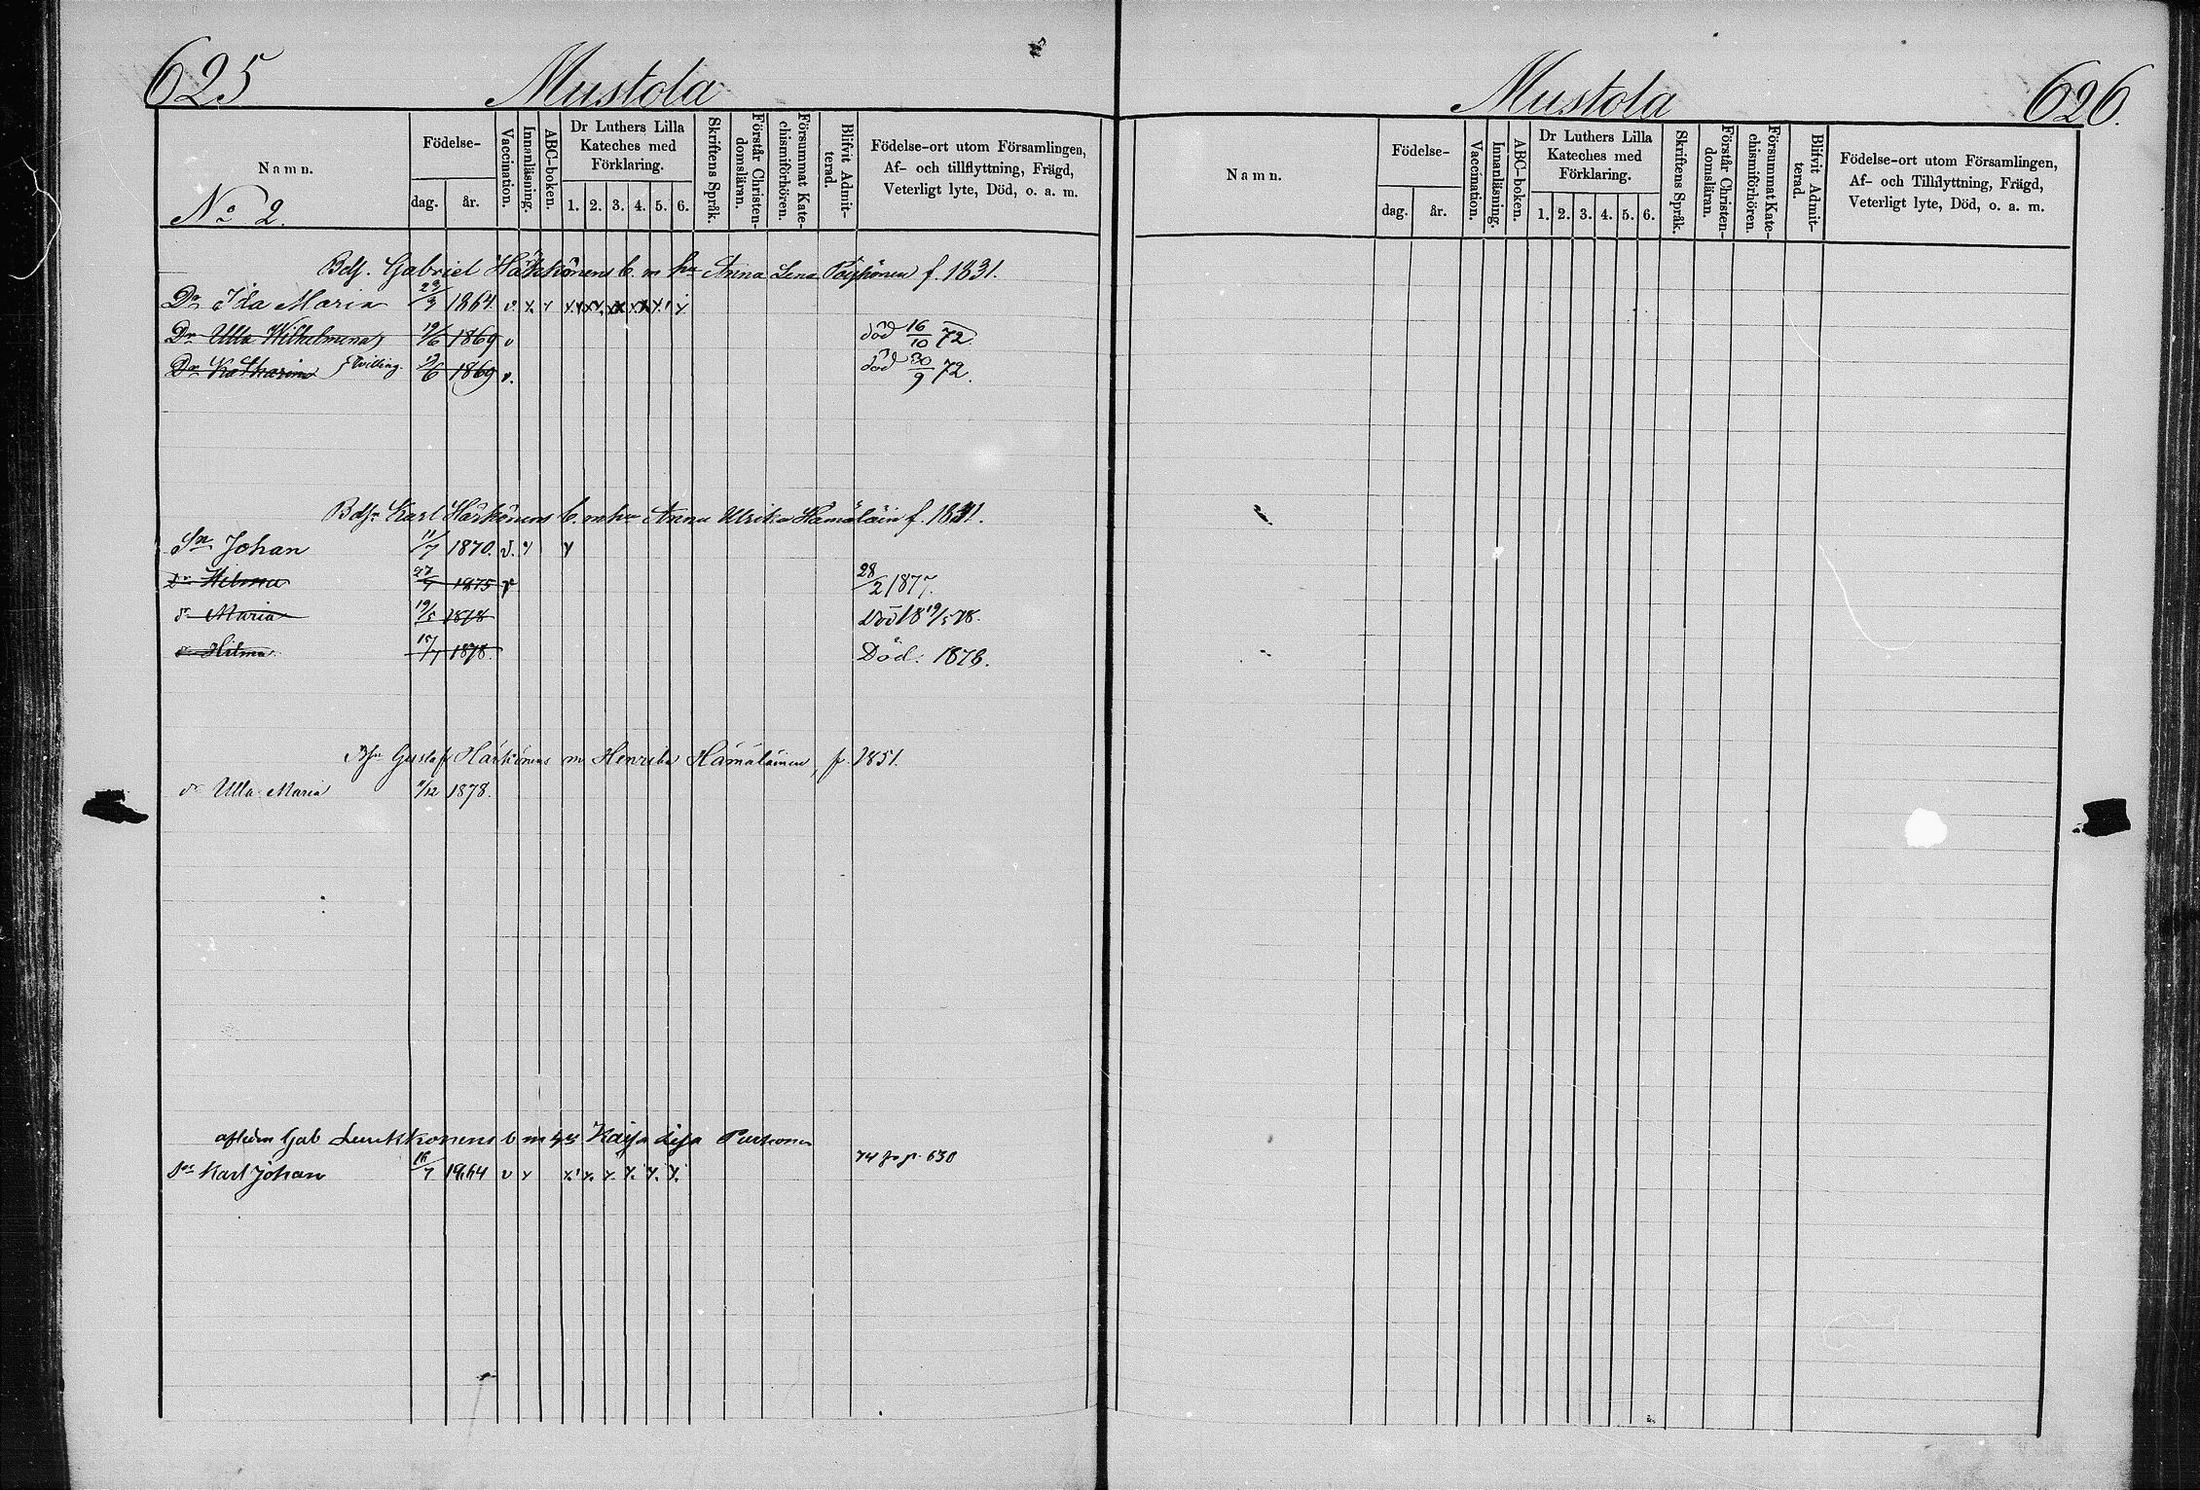 625 Mustola
Namn.
No 2.
Födelse-
dag. år.
Vaccination.
Innanläsning.
ABC-boken.
Dr Luthers Lilla
Kateches med
Förklaring.
1. 2. 3. 4. 5. 6.
Skriftens Språk.
Förstår Christen-
domsläran.
Försummat Kate-
chismiförhören.
Blifvit Admit-
terad.
Födelse-ort utom Församlingen,
Af- och tillflyttning, Frägd,
Veterligt lyte, Död, o. a. m.
Gabriel Härkönens b. m hu Anna Lena f. 1831.
Dr Ida Maria 23/3 1864 v.
Dr Ulla Wilhelmina 19/6 1869 v död 16/10 72.
Dr Katharina Tvilling. 19/6 1869 v. död 30/9 72.
Karl Härkönens b. m hu Anna Ulrika Hämäläin f.
Sn Johan 11/7 1870. v.
Dr Hilma 1875 28/2 1877.
dr Maria 19/5 1878 19/5 78.
dr Hilma 1878. Död. 1878.
Gustaf Härkönens m Henrika Hämäläinen f. 1851.
dr Ulla Maria 1878.
Gab b m Kaisa Lisa
Sn Karl Johan v
74 fr p. 630
Mustola 626.
Namn.
Födelse-
dag. år.
Vaccination.
Innanläsning.
ABC-boken.
Dr Luthers Lilla
Kateches med
Förklaring.
1. 2. 3. 4. 5. 6.
Skriftens Språk.
Förstår Christen-
domsläran.
Försummat Kate-
chismiförhören.
Blifvit Admit-
terad.
Födelse-ort utom Församlingen,
Af- och Tillflyttning, Frägd,
Veterligt lyte, Död, o. a. m.